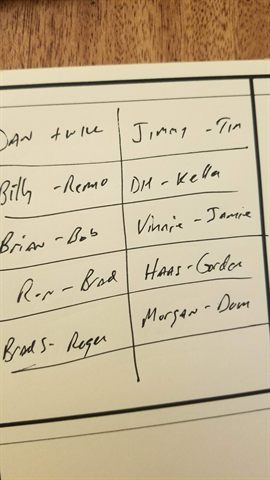 DAN + will
Billy - Remo
Brian - Bob
Ron - Brad
Brad S - Roger
Jimmy - Tim
DH - Kella
Vinnie - Jamie
HAAS - Gordon
Morgan - Dom